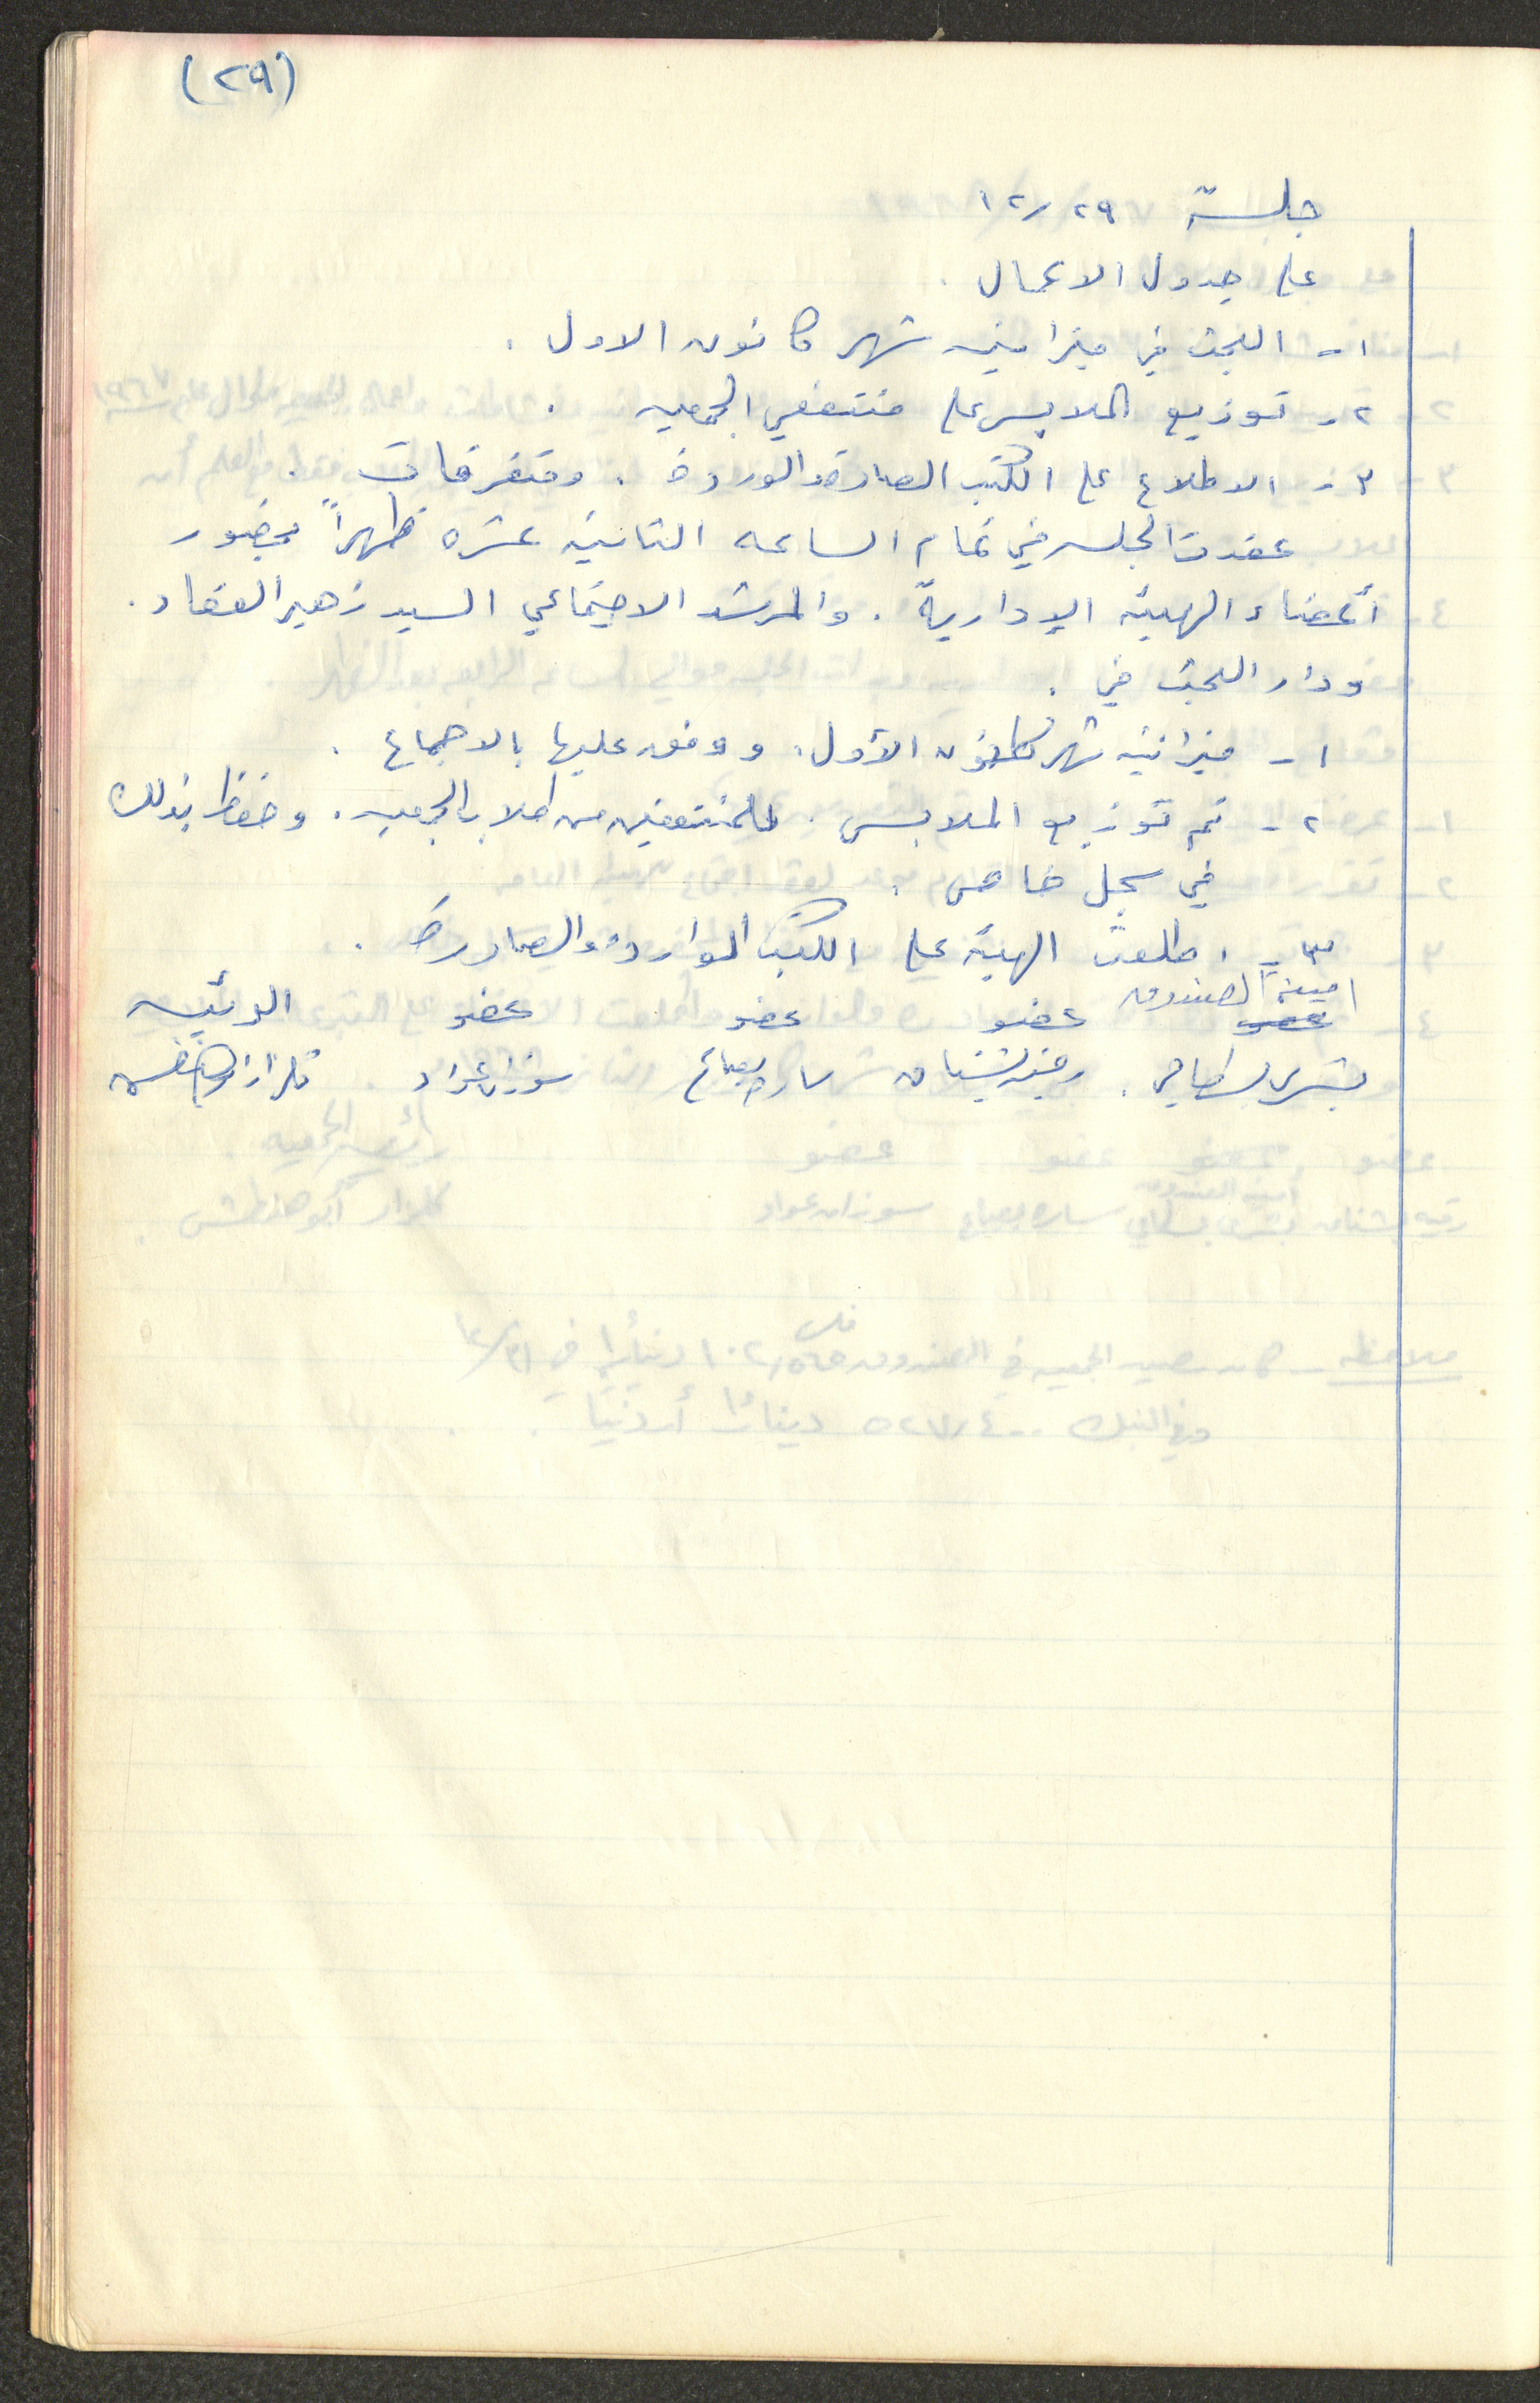 (٢٩)
جلسة ٢٩/١٢
على جدول الاعمال .
١- البحث في ميزانيه شهر كانون الاول .
٢- توزيع الملابس على منتفعي الجمعيه .
٣- الاطلاع على الكتب الصادره والوروده . ومتفرقات .
عقدت الجلسه في تمام الساعه الثانيه عشره ظهراً بحضور
أعضاء الهيئه الإدارية . والمرشد الاجتماعي السيد زهير العقاد .
ودار البحث في .
١- ميزانيه شهر كانون الأول. ووفق عليها بالاجماع .
٢- تم توزيع الملابس . للمنتفعين من طلاب الجمعيه . وحفظ بذلك
في سجل خاص .
٣- اطلعت الهيئة على الكتب الوارده والصادره .
امينة الصندوق عضو عضو عضو الرئيسه
بشرى بسطامي . رقيه بشناق ساره بعباع سوزان عواد كلارا